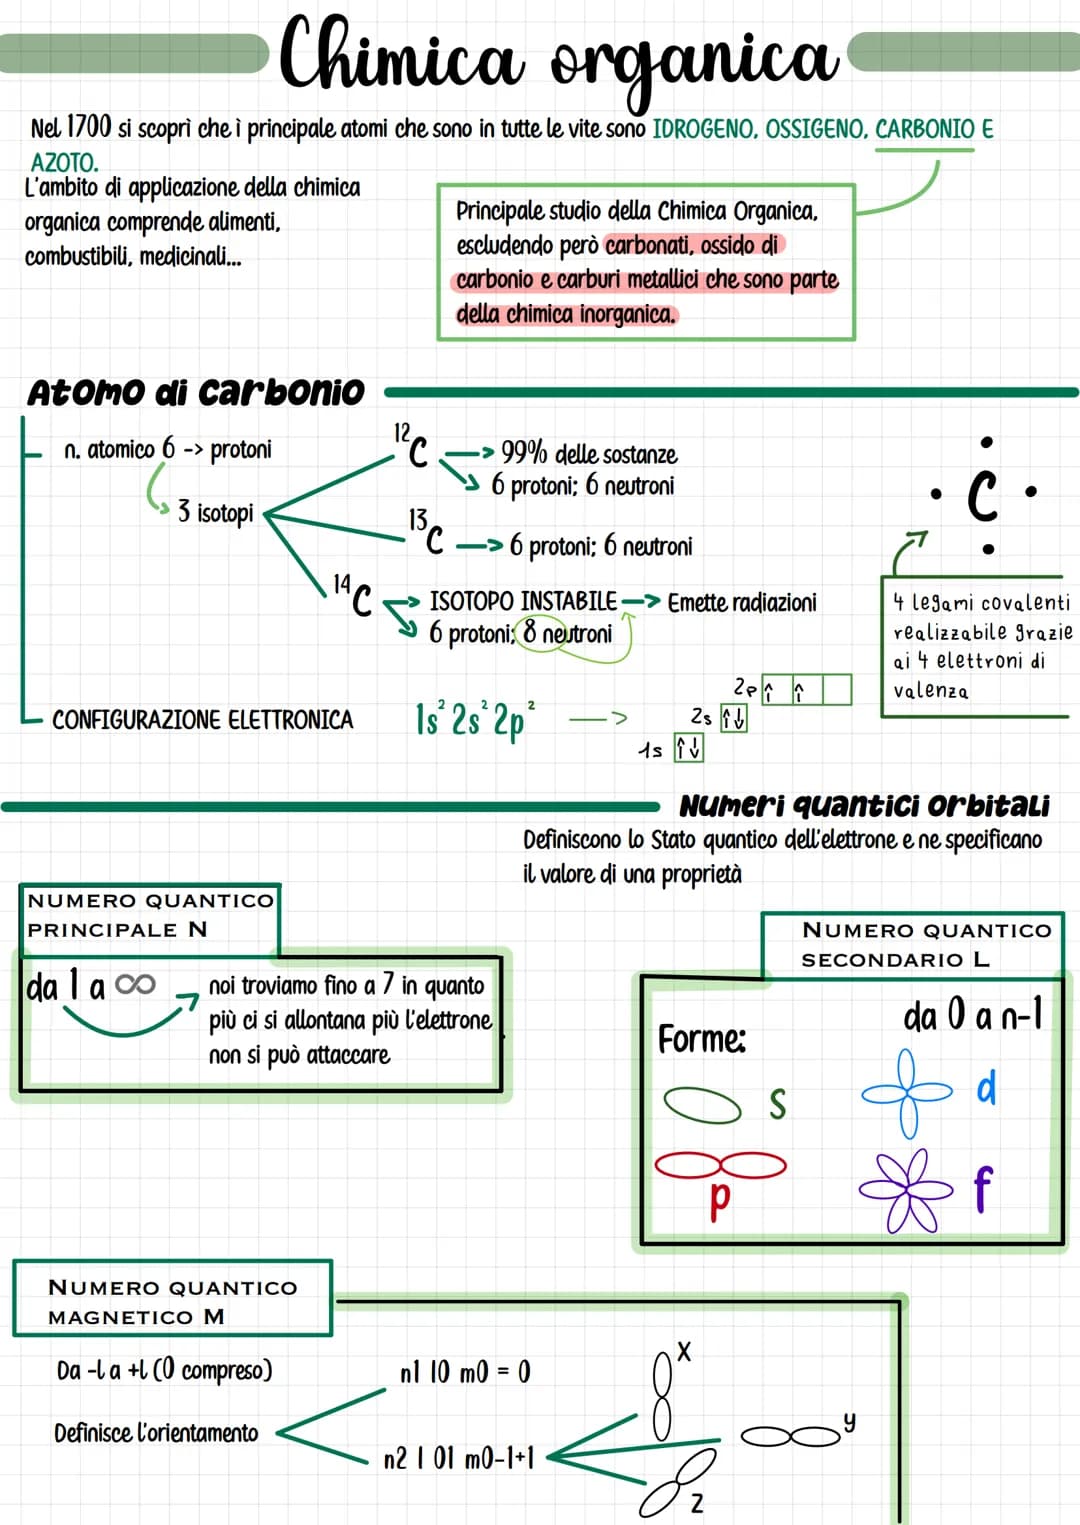 Chimica organica
Nel 1700 si scoprì che ì principale atomi che sono in tutte le vite sono IDROGENO, OSSIGENO, CARBONIO E
AZOTO.
L'ambito di applicazione della chimica
organica comprende alimenti,
combustibili, medicinali...
Principale studio della Chimica Organica,
escludendo però carbonati, ossido di
carbonio e carburi metallici che sono parte
della chimica inorganica.
Atomo di carbonio
n. atomico 6 -> protoni
3 isotopi
12C
99% delle sostanze
6 protoni; 6 neutroni
13C
6 protoni; 6 neutroni
14C
ISOTOPO INSTABILE
Emette radiazioni
6 protoni; 8 neutroni
C
4 legami covalenti
realizzabile grazie
ai 4 elettroni di
valenza
CONFIGURAZIONE ELETTRONICA
1s² 2s² 2p²
2p ↑ ↑
2s ↑↓
1s ↑↓
Numeri quantici orbitali
Definiscono lo Stato quantico dell'elettrone e ne specificano
il valore di una proprietà
NUMERO QUANTICO
PRINCIPALE N
da 1 a ∞
noi troviamo fino a 7 in quanto
più ci si allontana più l'elettrone
non si può attaccare
NUMERO QUANTICO
SECONDARIO L
da 0 a n-1
Forme:
s
d
p
f
NUMERO QUANTICO
MAGNETICO M
Da -l a +l (0 compreso)
Definisce l'orientamento
n1 l0 m0 = 0
n2 l 01 m0-1+1
x
y
z